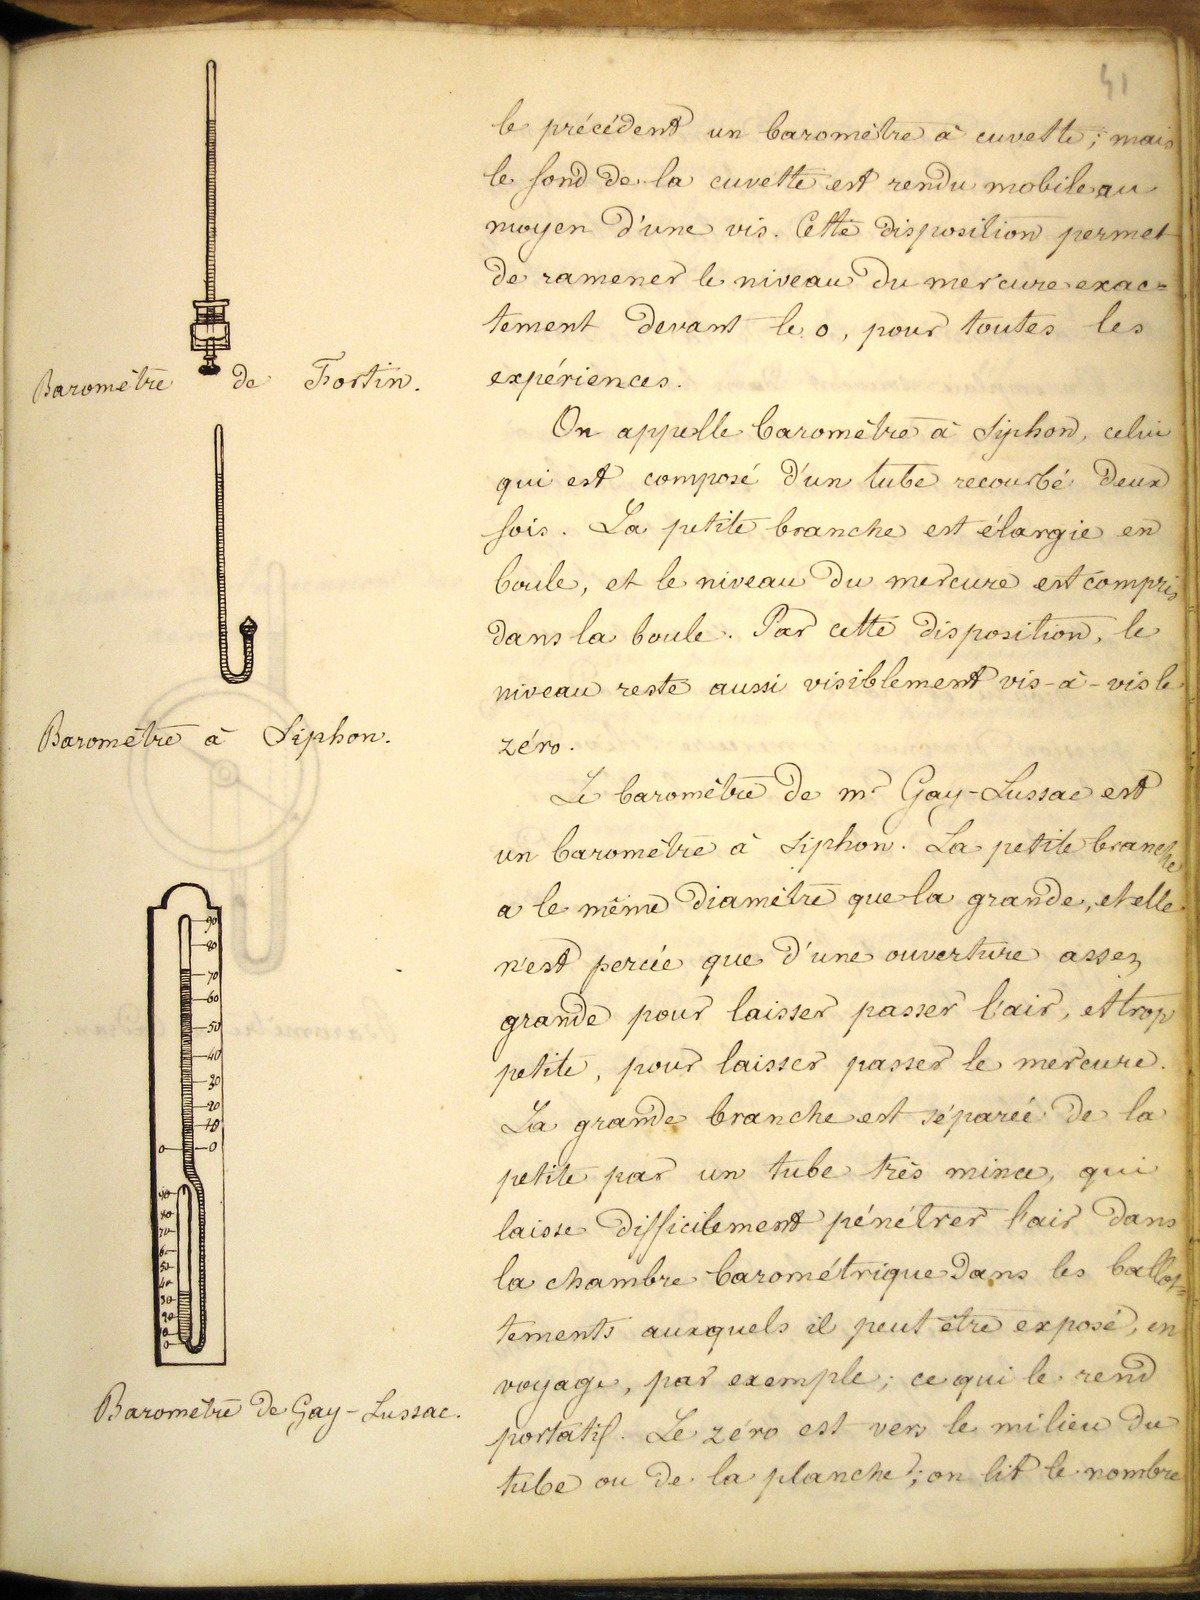 41
le précédent un baromètre à cuvette; mais
le fond de la cuvette est rendu mobile au
moyen d'une vis. Cette disposition permet
de ramener le niveau du mercure exac=
tement devant le 0, pour toutes les
expériences.
Baromètre de Fortin.
On appelle baromètre à siphon, celui
qui est composé d'un tube recourbé deux
fois. La petite branche est élargie en
boule, et le niveau du mercure est compris
dans la boule. Par cette disposition, le
niveau reste aussi visiblement vis-à-vis le
zéro.
Baromètre à Siphon.
Le baromètre de mr Gay-Lussac est
un baromètre à siphon. La petite branche
a le même diamètre que la grande, et elle
n'est percée que d'une ouverture assez
grande pour laisser passer l'air, et trop
petite, pour laisser passer le mercure.
La grande branche est séparée de la
petite par un tube très mince, qui
laisse difficilement pénétrer l'air dans
la chambre barométrique dans les ballot=
tements auxquels il peut être exposé, en
voyage, par exemple; ce qui le rend
portatif. Le zéro est vers le milieu du
tube ou de la planche; on lit le nombre
90
80
70
60
50
40
30
20
10
0 0
90
80
70
60
50
40
30
20
10
0
Baromètre de Gay-Lussac.